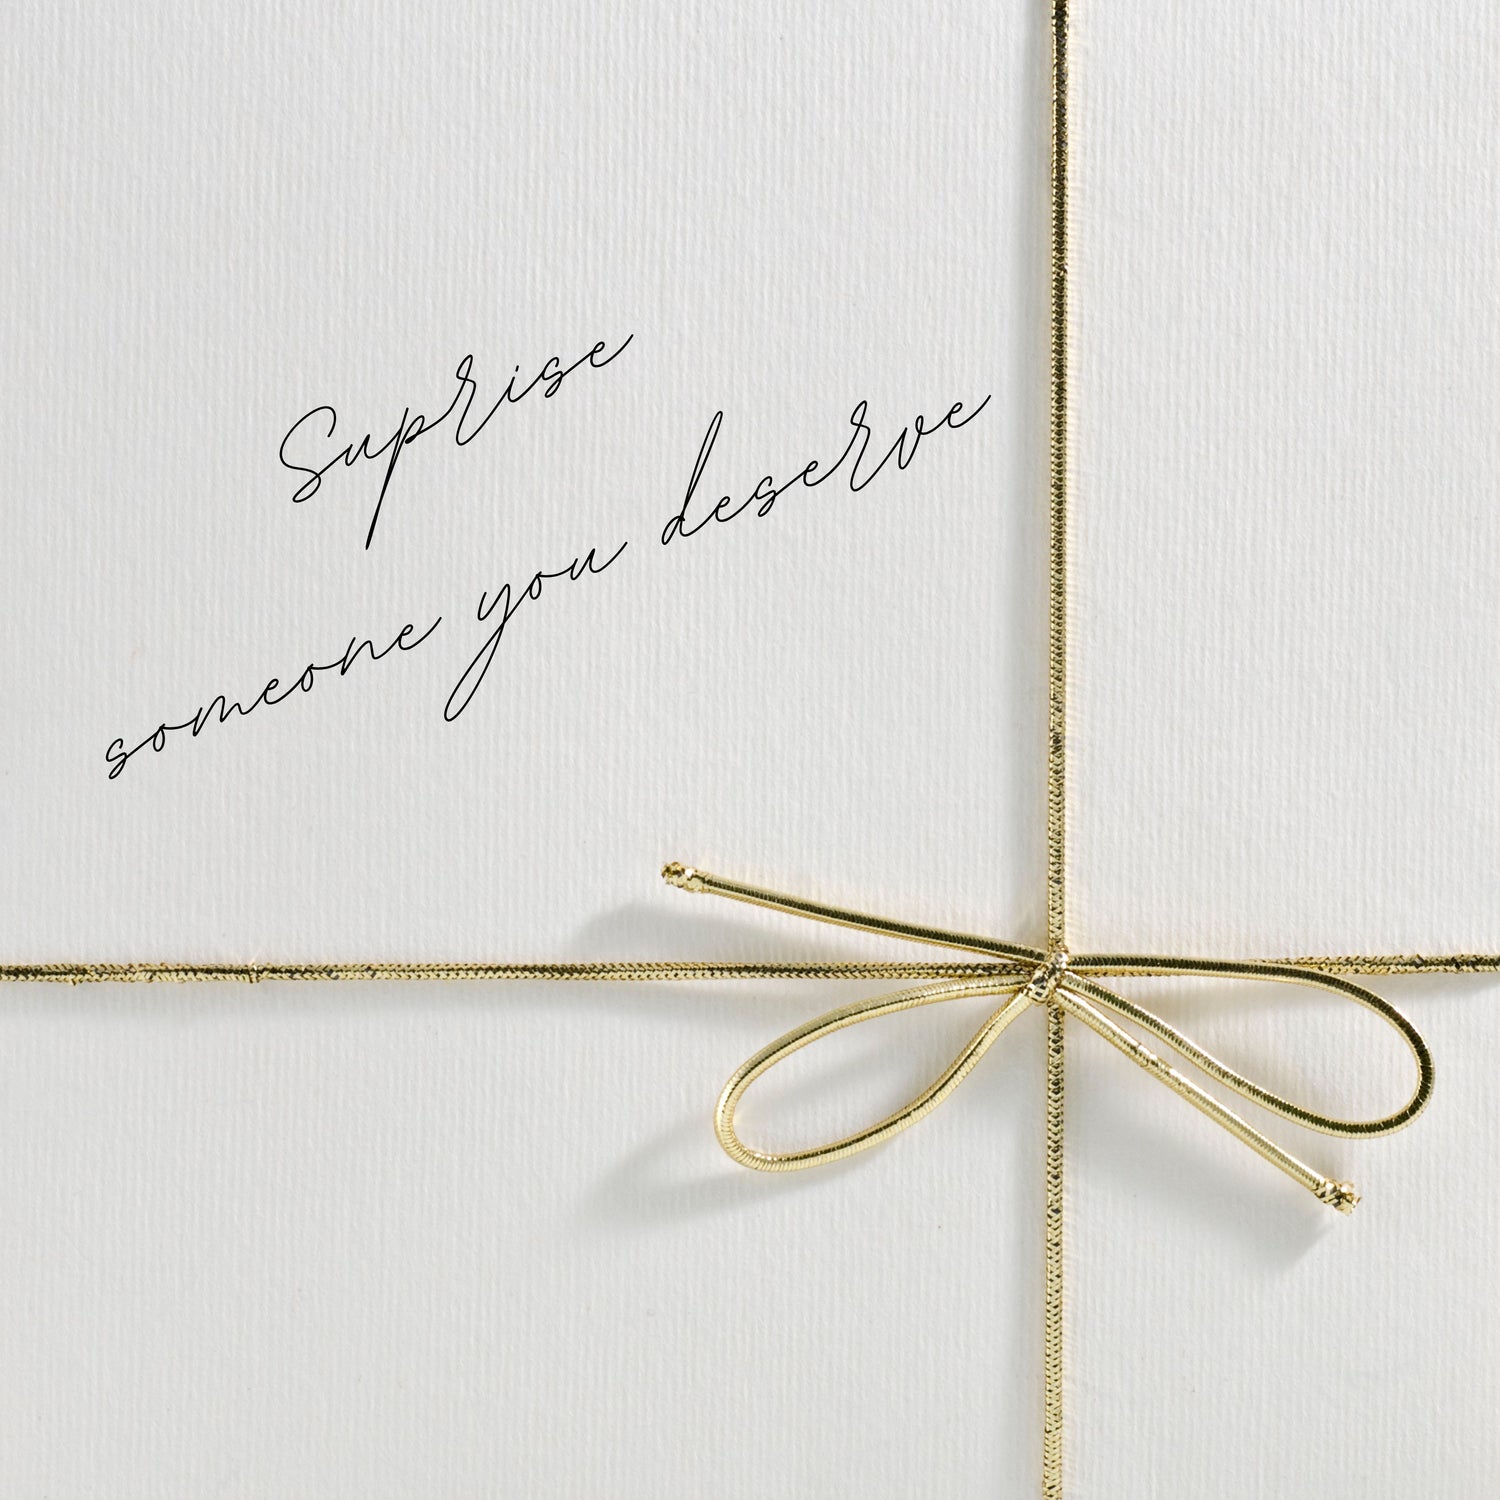 Suprise
someone you deserve